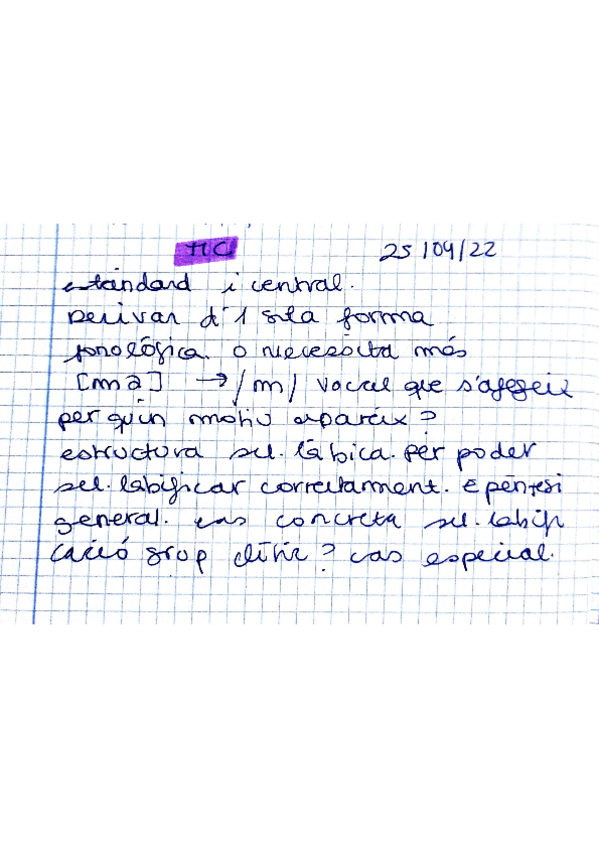 TLC 25/04/22
estàndard i central.
Derivar d'1 sola forma
fonològica. o necessita més
[mə] → /m/ vocal que s'afegeix
per quin motiu apareix?
estructura sil·làbica. per poder
sil·labificar correctament. Epèntesi
general. cas concreta sil·labifi
cació grup clític? cas especial.